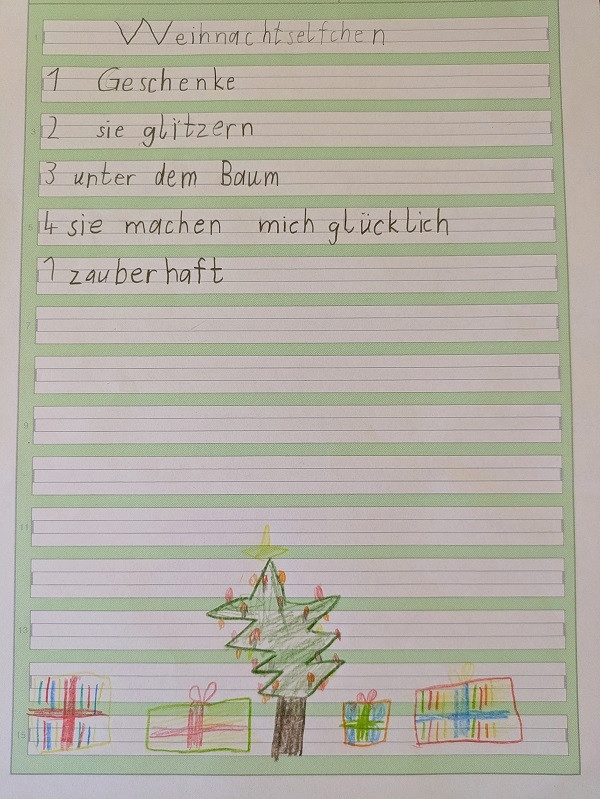 Weihnachtselfchen
1 Geschenke
2 sie glitzern
3 unter dem Baum
4 sie machen mich glücklich
1 zauberhaft